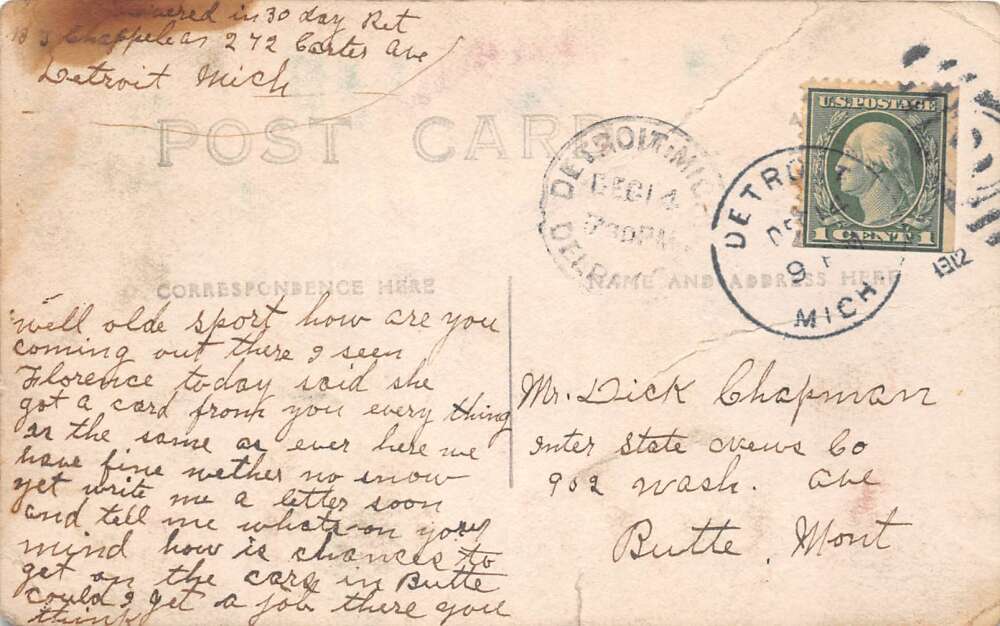 in 30 day Ret
272 Carter Ave
Detroit Mich
POST CARD
DETROIT, MICH.
DEC 14
730 PM
DELRAY
DETROIT
DEC 14
9 P
MICH.
1912
U.S. POSTAGE
1 CENT 1
CORRESPONDENCE HERE
NAME AND ADDRESS HERE
well olde sport how are you
coming out there I seen
Florence today said she
got a card fronk you every thing
ar the same as ever here we
have fine wether no snow
yet write me a letter soon
and tell me whats on your
mind how is chances to
get on the cars in Butte
could I get a job there you
think
Mr. Dick Chapman
Inter State News Co
902 Wash. Ave
Butte, Mont